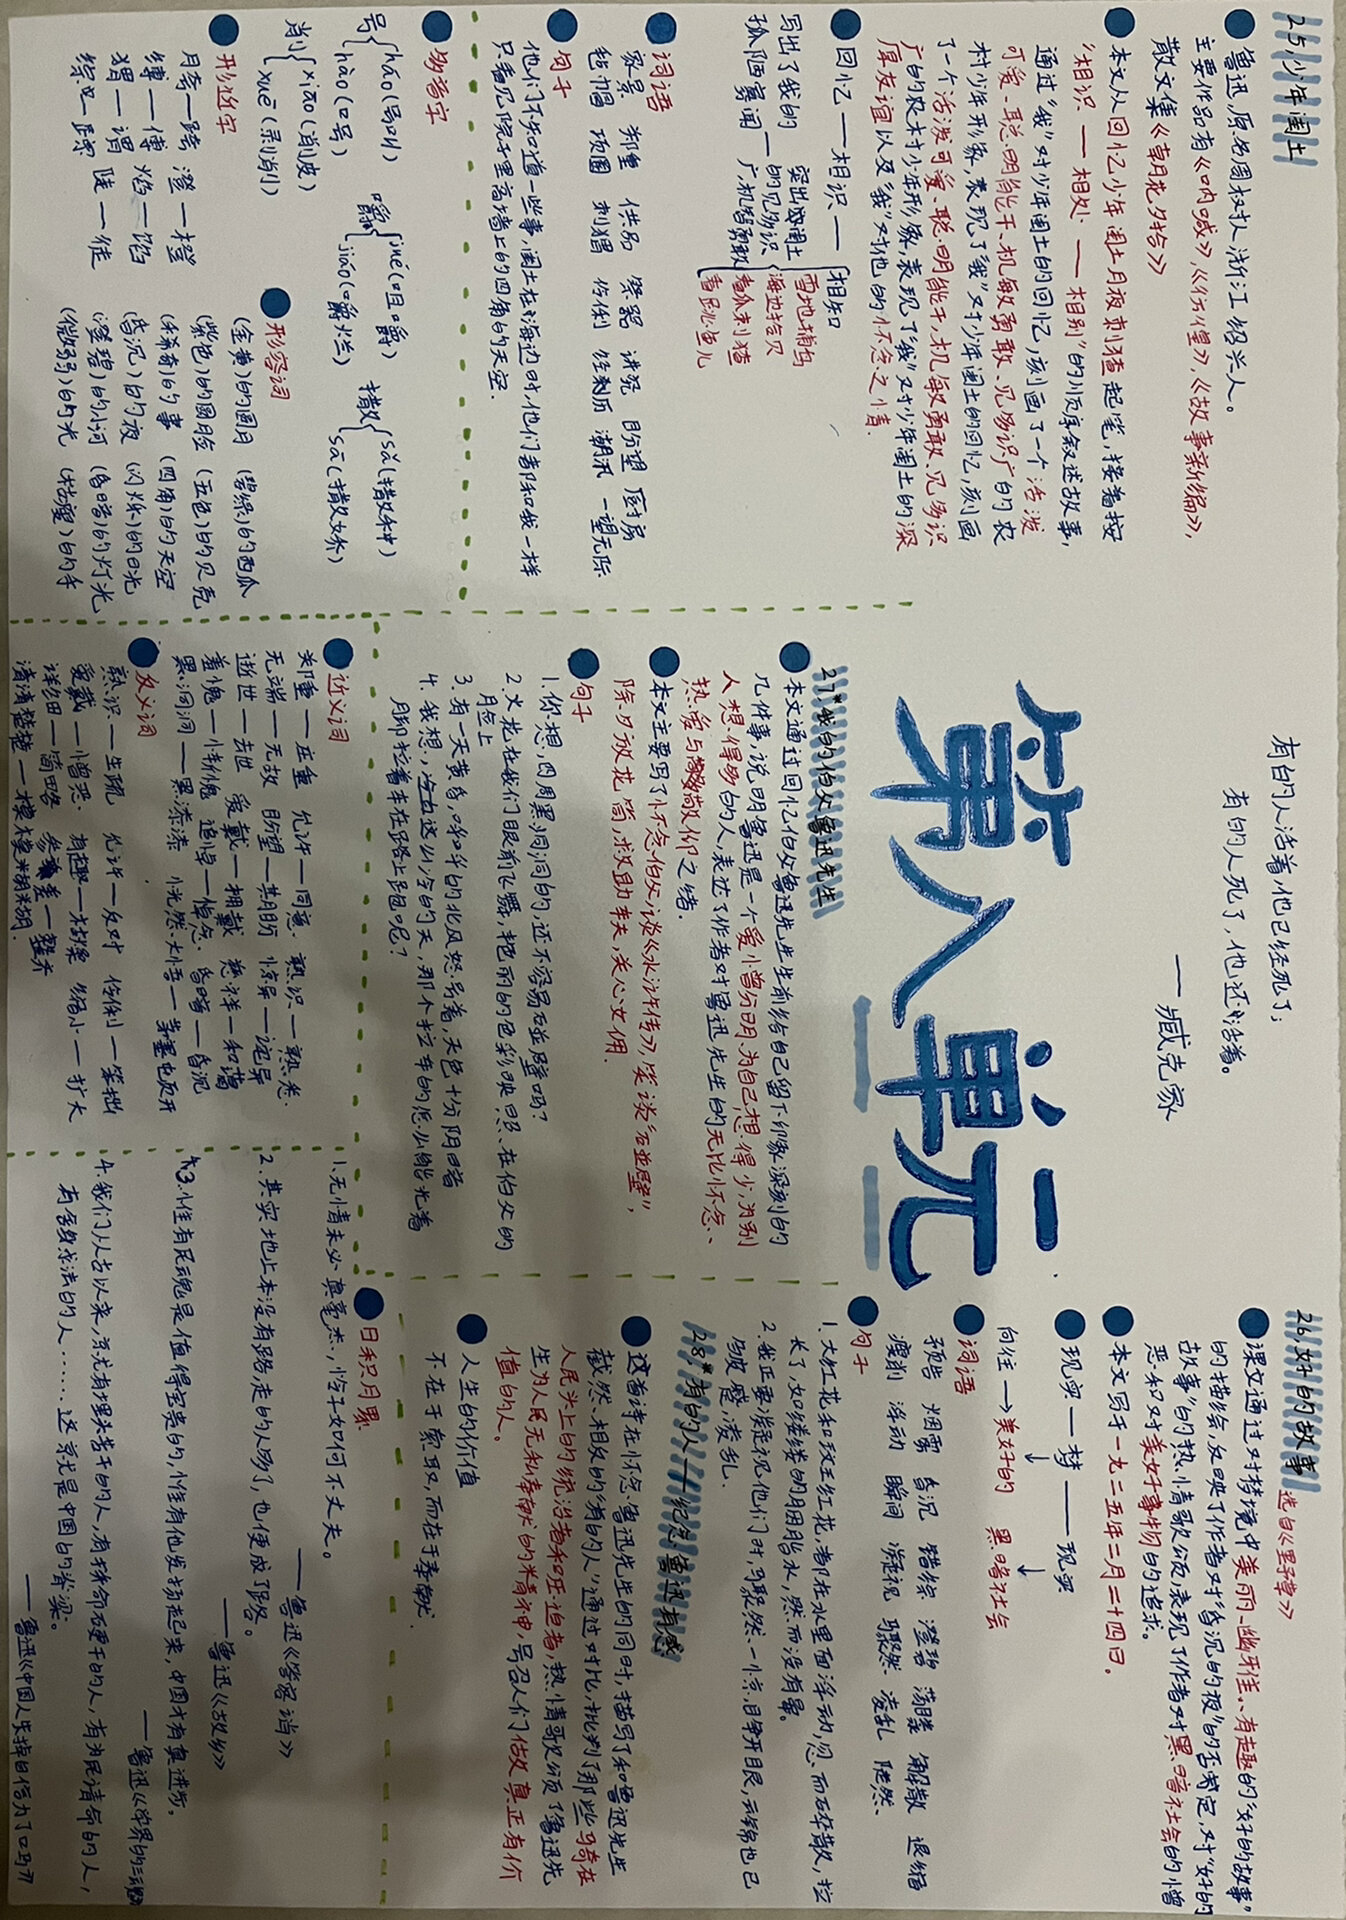 25 少年闰土
鲁迅,原名周树人,浙江绍兴人。
主要作品有《呐喊》,《彷徨》,《故事新编》,
散文集《朝花夕拾》
本文从回忆少年闰土月夜刺猹起笔,接着按
“相识——相处——相别”的顺序叙述故事,
通过“我”对少年闰土的回忆,刻画了一个活泼
可爱、聪明能干、机敏勇敢、见多识广的农
村少年形象,表现了“我”对少年闰土的回忆,刻画
了一个活泼可爱、聪明能干,机敏勇敢、见多识
广的农村少年形象,表现了“我”对少年闰土的深
厚友谊以及“我”对他的怀念之情.
回忆——相识——相知
写出了我的 突出闰土
孤陋寡闻——的见多识
广,机智勇敢
雪地捕鸟
海边拾贝
看瓜刺猹
看跳鱼儿
词语
家景 郑重 供品 祭器 讲究 盼望 厨房
毡帽 项圈 刺猬 伶俐 经历 潮汛 一望无际
句子
他们不知道一些事,闰土在海边时,他们都和我一样
只看见院子里高墙上的四角的天空.
多音字
号{háo(号叫)
hào(口号)
嚼{jué(咀嚼)
jiáo(嚼烂)
撒{sǎ(撒种)
sā(撒娇)
削{xiāo(削皮)
xuē(剥削)
形近字
月夸—跨 澄—橙
缚—傅 焰—陷
猬—谓 陡—徒
综—踪
形容词
(金黄)的圆月 (碧绿)的西瓜
(紫色)的圆脸 (五色)的贝壳
(稀奇)的事 (四角)的天空
(昏沉)的夜 (闪烁)的日光
(澄碧)的小河 (昏暗)的灯光
(微弱)的光 (枯瘦)的手
有的人活着,他已经死了;
有的人死了,他还活着。
——臧克家
第八单元
27*我的伯父鲁迅先生
本文通过回忆伯父鲁迅先生生前给自己留下印象深刻的
几件事,说明鲁迅是一个爱憎分明、为自己想得少,为别
人想得多的人,表达了作者对鲁迅先生的无比怀念、
热爱与敬仰之情.
本文主要写了怀念伯父,谈《水浒传》,笑谈“碰壁”,
除夕放花筒,救助车夫,关心女佣.
句子
1.你想,四周黑洞洞的,还不容易碰壁吗?
2.火花在我们眼前飞舞,艳丽的色彩映照在伯父的
脸上
3.有一天黄昏,呼呼的北风怒号着,天色十分阴暗
4.我想,这么冷的天,那个拉车的怎么能光着
脚拉着车在路上跑呢?
近义词
郑重—庄重 允许—同意 熟识—熟悉
无端—无故 盼望—期盼 惊异—诧异
逝世—去世 爱戴—拥戴 慈祥—和蔼
羞愧—惭愧 追悼—悼念 昏暗—昏沉
黑洞洞—黑漆漆 恍然大悟—茅塞顿开
反义词
熟识—生疏 允许—反对 伶俐—笨拙
爱戴—憎恶 有趣—枯燥 缩小—扩大
详细—简略 参差—整齐
清清楚楚—模模糊糊
26 好的故事 选自《野草》
课文通过对梦境中美丽、幽雅、有趣的“好的故事”
的描绘,反映了作者对“昏沉的夜”的否定,对“好的
故事”的热情歌颂,表现了作者对黑暗社会的憎
恶和对美好事物的追求。
本文写于一九二五年二月二十四日.
现实——梦——现实
↓ ↓
向往→美好的 黑暗社会
词语
预告 烟雾 昏沉 错综 澄碧 荡漾 解散 退缩
瘦削 浮动 瞬间 凝视 骤然 凌乱 陡然
句子
1.大红花和斑红花,都在水里面浮动,忽而碎散,拉
长了,如缕缕的胭脂水,然而没有晕。
2.我正要凝视他们时,骤然一惊,睁开眼,云锦也已
皱蹙,凌乱.
28*有的人——纪念鲁迅有感
这首诗在怀念鲁迅先生的同时,描写了和鲁迅先生
截然相反的“有的人”通过对比,批判了那些骑在
人民头上的统治者和压迫者,热情歌颂了鲁迅先
生为人民无私奉献的精神,号召人们做真正有价
值的人。
人生的价值
不在于索取,而在于奉献.
日积月累
1.无情未必真豪杰,怜子如何不丈夫。
——鲁迅《答客诮》
2.其实地上本没有路,走的人多了,也便成了路。
——鲁迅《故乡》
3.惟有民魂是值得宝贵的,惟有他发扬起来,中国才有真进步。
——鲁迅《学界的三魂》
4.我们从古以来,就有埋头苦干的人,有拼命硬干的人,有为民请命的人,
有舍身求法的人……这就是中国的脊梁。
——鲁迅《中国人失掉自信力了吗》